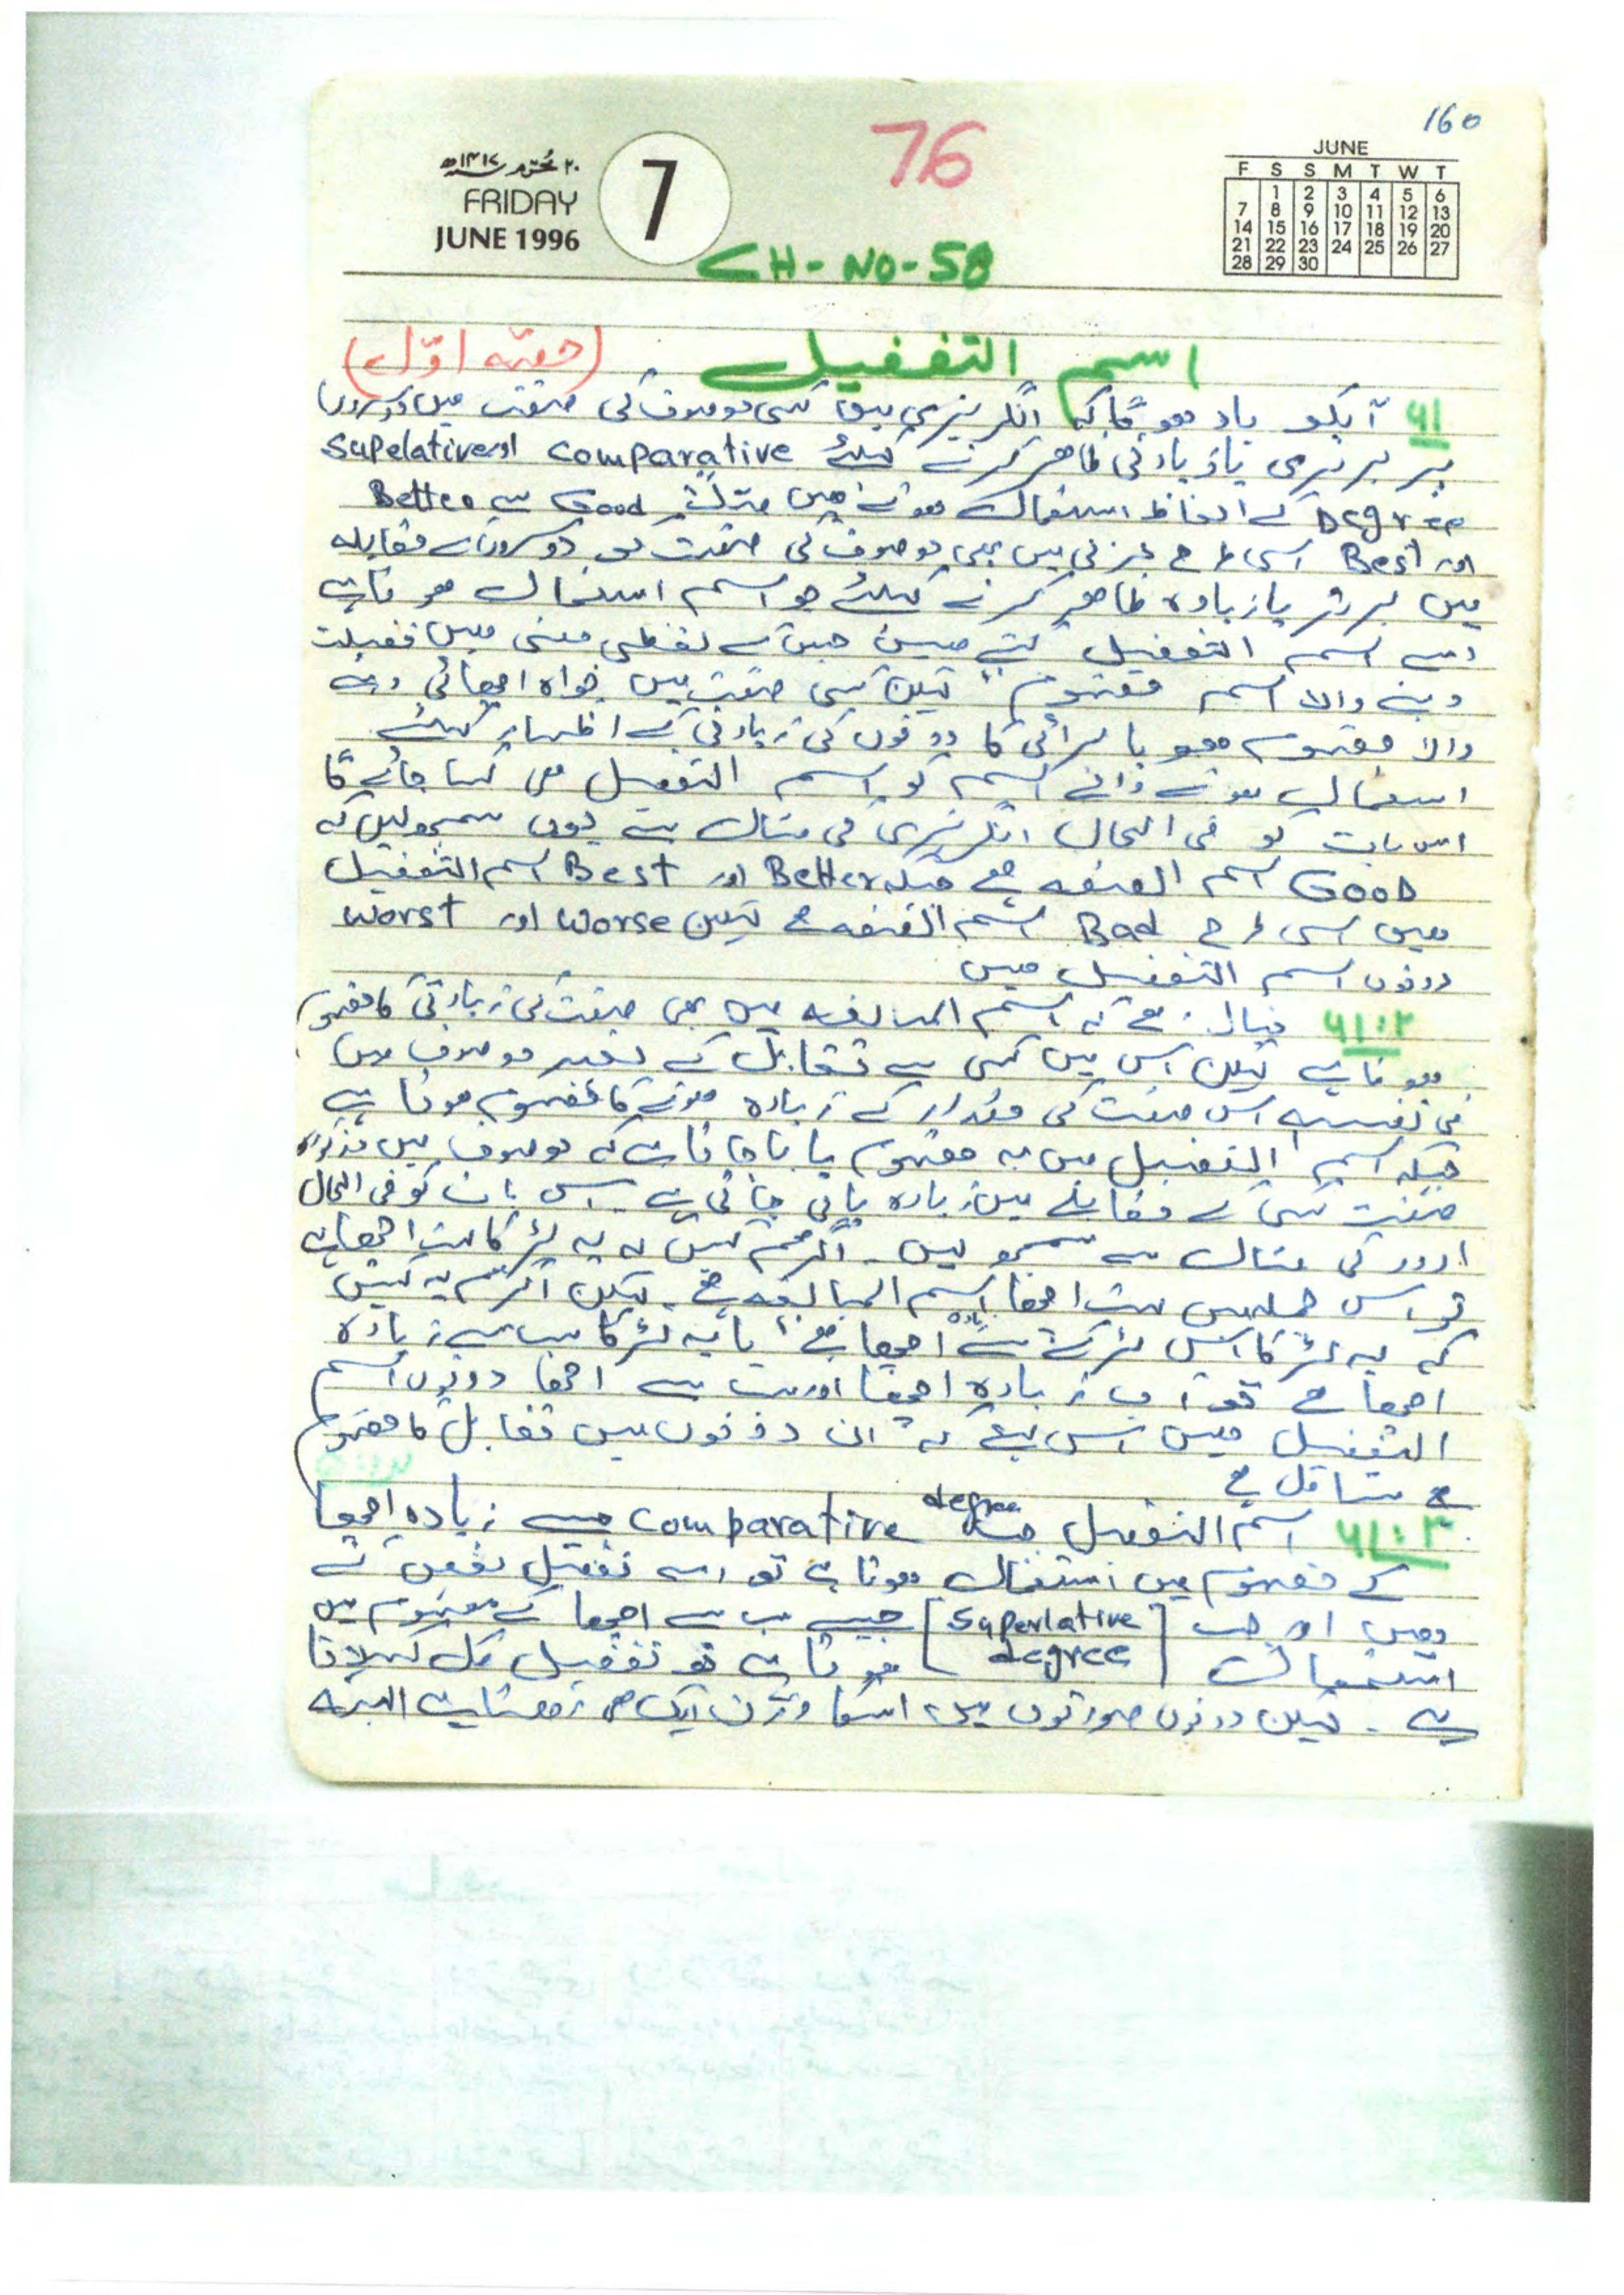 160
76
۲۰ محرّم ۱۴۱۷ھ
FRIDAY
JUNE 1996
7
JUNE
F S S M T W T
1 2 3 4 5 6
7 8 9 10 11 12 13
14 15 16 17 18 19 20
21 22 23 24 25 26 27
28 29 30
CH-NO-58
اسم التفضیل (حصّہ اوّل)
۶۱ آپکو یاد ہوگا کہ انگریزی میں کسی موصوف کی صفت میں دوسروں
پر برتری یا زیادتی ظاہر کرنے کیلئے comparative اور Supelative
Degree کے الفاظ استعمال ہوتے ہیں مثلاً Good سے Better
اور Best اسی طرح عربی میں بھی موصوف کی صفت کو دوسروں کے مقابلہ
میں برتر یا زیادہ ظاہر کرنے کیلئے جو اسم استعمال ہوتا ہے
اسے اسم التفضیل کہتے ہیں جس کے لفظی معنی ہیں فضیلت
دینے والا اسم مفہوم لیکن کسی صفت میں خواہ اچھائی دینے
والا مفہوم ہو یا برائی کا دونوں کی زیادتی کے اظہار کیلئے
استعمال ہونے والے اسم کو اسم التفضیل ہی کہا جائے گا
اس بات کو فی الحال انگریزی کی مثال سے یوں سمجھ لیں کہ
GOOD اسم الصفہ ہے جبکہ Better اور Best اسم التفضیل
ہیں اسی طرح Bad اسم الصفہ ہے لیکن worse اور worst
دونوں اسم التفضیل ہیں
۶۱:۲ خیال رہے کہ اسم المبالغہ میں بھی صفت کی زیادتی کا مفہوم
ہوتا ہے لیکن اس میں کسی سے تقابل کے بغیر موصوف میں
فی نفسہ اس صفت کی مقدار کے زیادہ ہونے کا مفہوم ہوتا ہے
جبکہ اسم التفضیل میں یہ مفہوم پایا جاتا ہے کہ موصوف میں مذکورہ
صفت کسی کے مقابلے میں زیادہ پائی جاتی ہے۔ اس بات کو فی الحال
اردو کی مثال سے سمجھ لیں۔ اگر ہم کہیں کہ یہ لڑکا بہت اچھا ہے
تو اس جملہ میں بہت اچھا اسم المبالغہ ہے۔ لیکن اگر ہم یہ کہیں
کہ یہ لڑکا اس لڑکے سے زیادہ اچھا ہے یا یہ لڑکا سب سے زیادہ
اچھا ہے تو اب زیادہ اچھا اور سب سے اچھا دونوں اسم
التفضیل ہیں اس لیے کہ ان دونوں میں تقابل کا مفہوم
شامل ہے
۶۱:۳ اسم التفضیل جب comparative degree جیسے زیادہ اچھا
کے مفہوم میں استعمال ہوتا ہے تو اسے تفضیل بعض کہتے
ہیں اور جب [Superlative degree] جیسے سب سے اچھا کے مفہوم میں
استعمال ہوتا ہے تو تفضیل کل کہلاتا
ہے۔ لیکن دونوں صورتوں میں اسکا وزن ایک ہی رہتا ہے البتہ